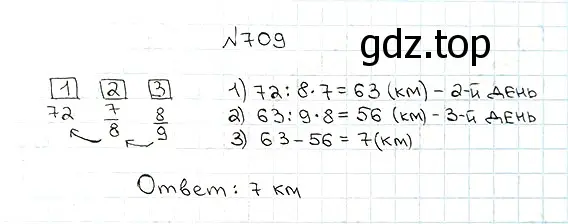 №709
gdz.top
1 2 3
72 7/8 8/9
1) 72:8·7=63 (км) – 2-й день
2) 63:9·8=56 (км) – 3-й день
3) 63–56=7(км)
Ответ: 7 км